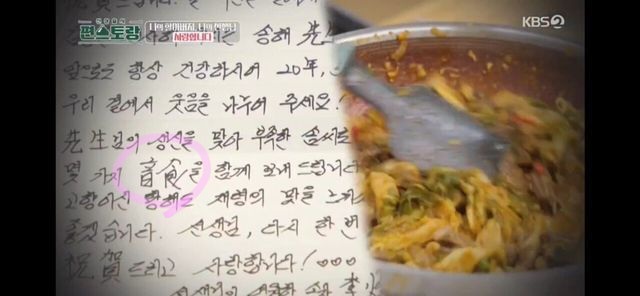 편스토랑
사랑합니다
KBS2
는 송해 先生
앞으로도 항상 건강하시어 20年,
우리 곁에서 웃음을 나누어 주세요!
先生님의 생신을 맞아 부족한 솜씨로
몇 가지 음食을 함께 보내드립니다
고향이신 황해도 재령의 맛을 느끼
좋겠습니다. 선생님, 다시 한 번
祝賀드리고 사랑합니다! ♡♡♡
선생님의